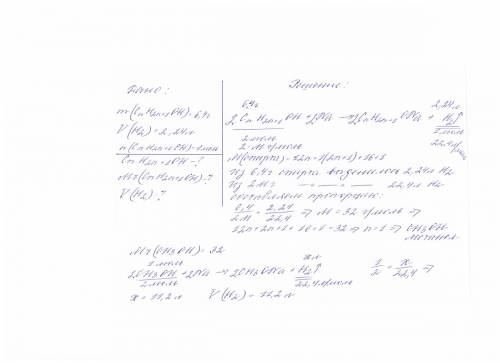 Дано:
m(CnH2n+1OH)=6,4г
V(H2)=2,24л
n(CnH2n+1OH)=1моль
CnH2n+1OH-?
Mr(CnH2n+1OH)-?
V(H2)-?
Решение:
6,4г 2,24л
2CnH2n+1OH+2Na→2CnH2n+1ONa+H2↑
2моль 1моль
2·M г/моль 22,4л/моль
M(спирта)=12n+1(2n+1)+16+1
Из 6,4г спирта выделилось 2,24л H2
Из 2M г —"—"—"— 22,4л H2
составляем пропорцию:
6,4/2M=2,24/22,4 ⇒ M=32 г/моль ⇒
12n+2n+1+16+1=32 ⇒ n=1 ⇒ CH3OH
метанол
Mr(CH3OH)=32
1моль xл
2CH3OH+2Na→2CH3ONa+H2↑ 1/2=x/22,4 ⇒
2моль 22,4л/моль
x=11,2л V(H2)=11,2л